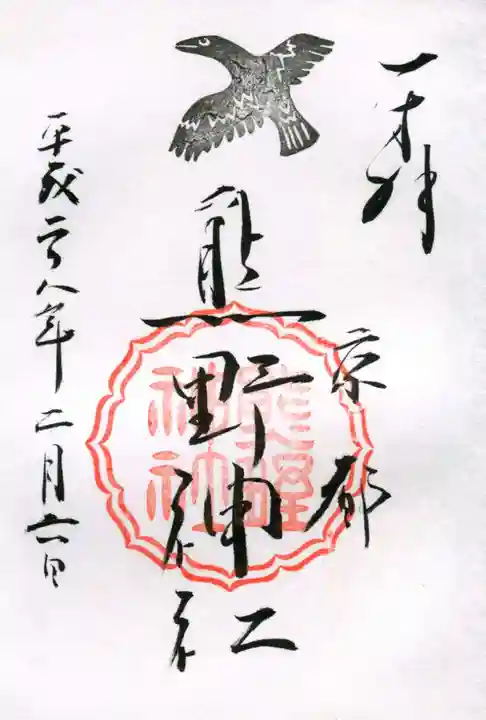 奉拝
京都
熊野神社
熊野神社
平成二八年二月六日